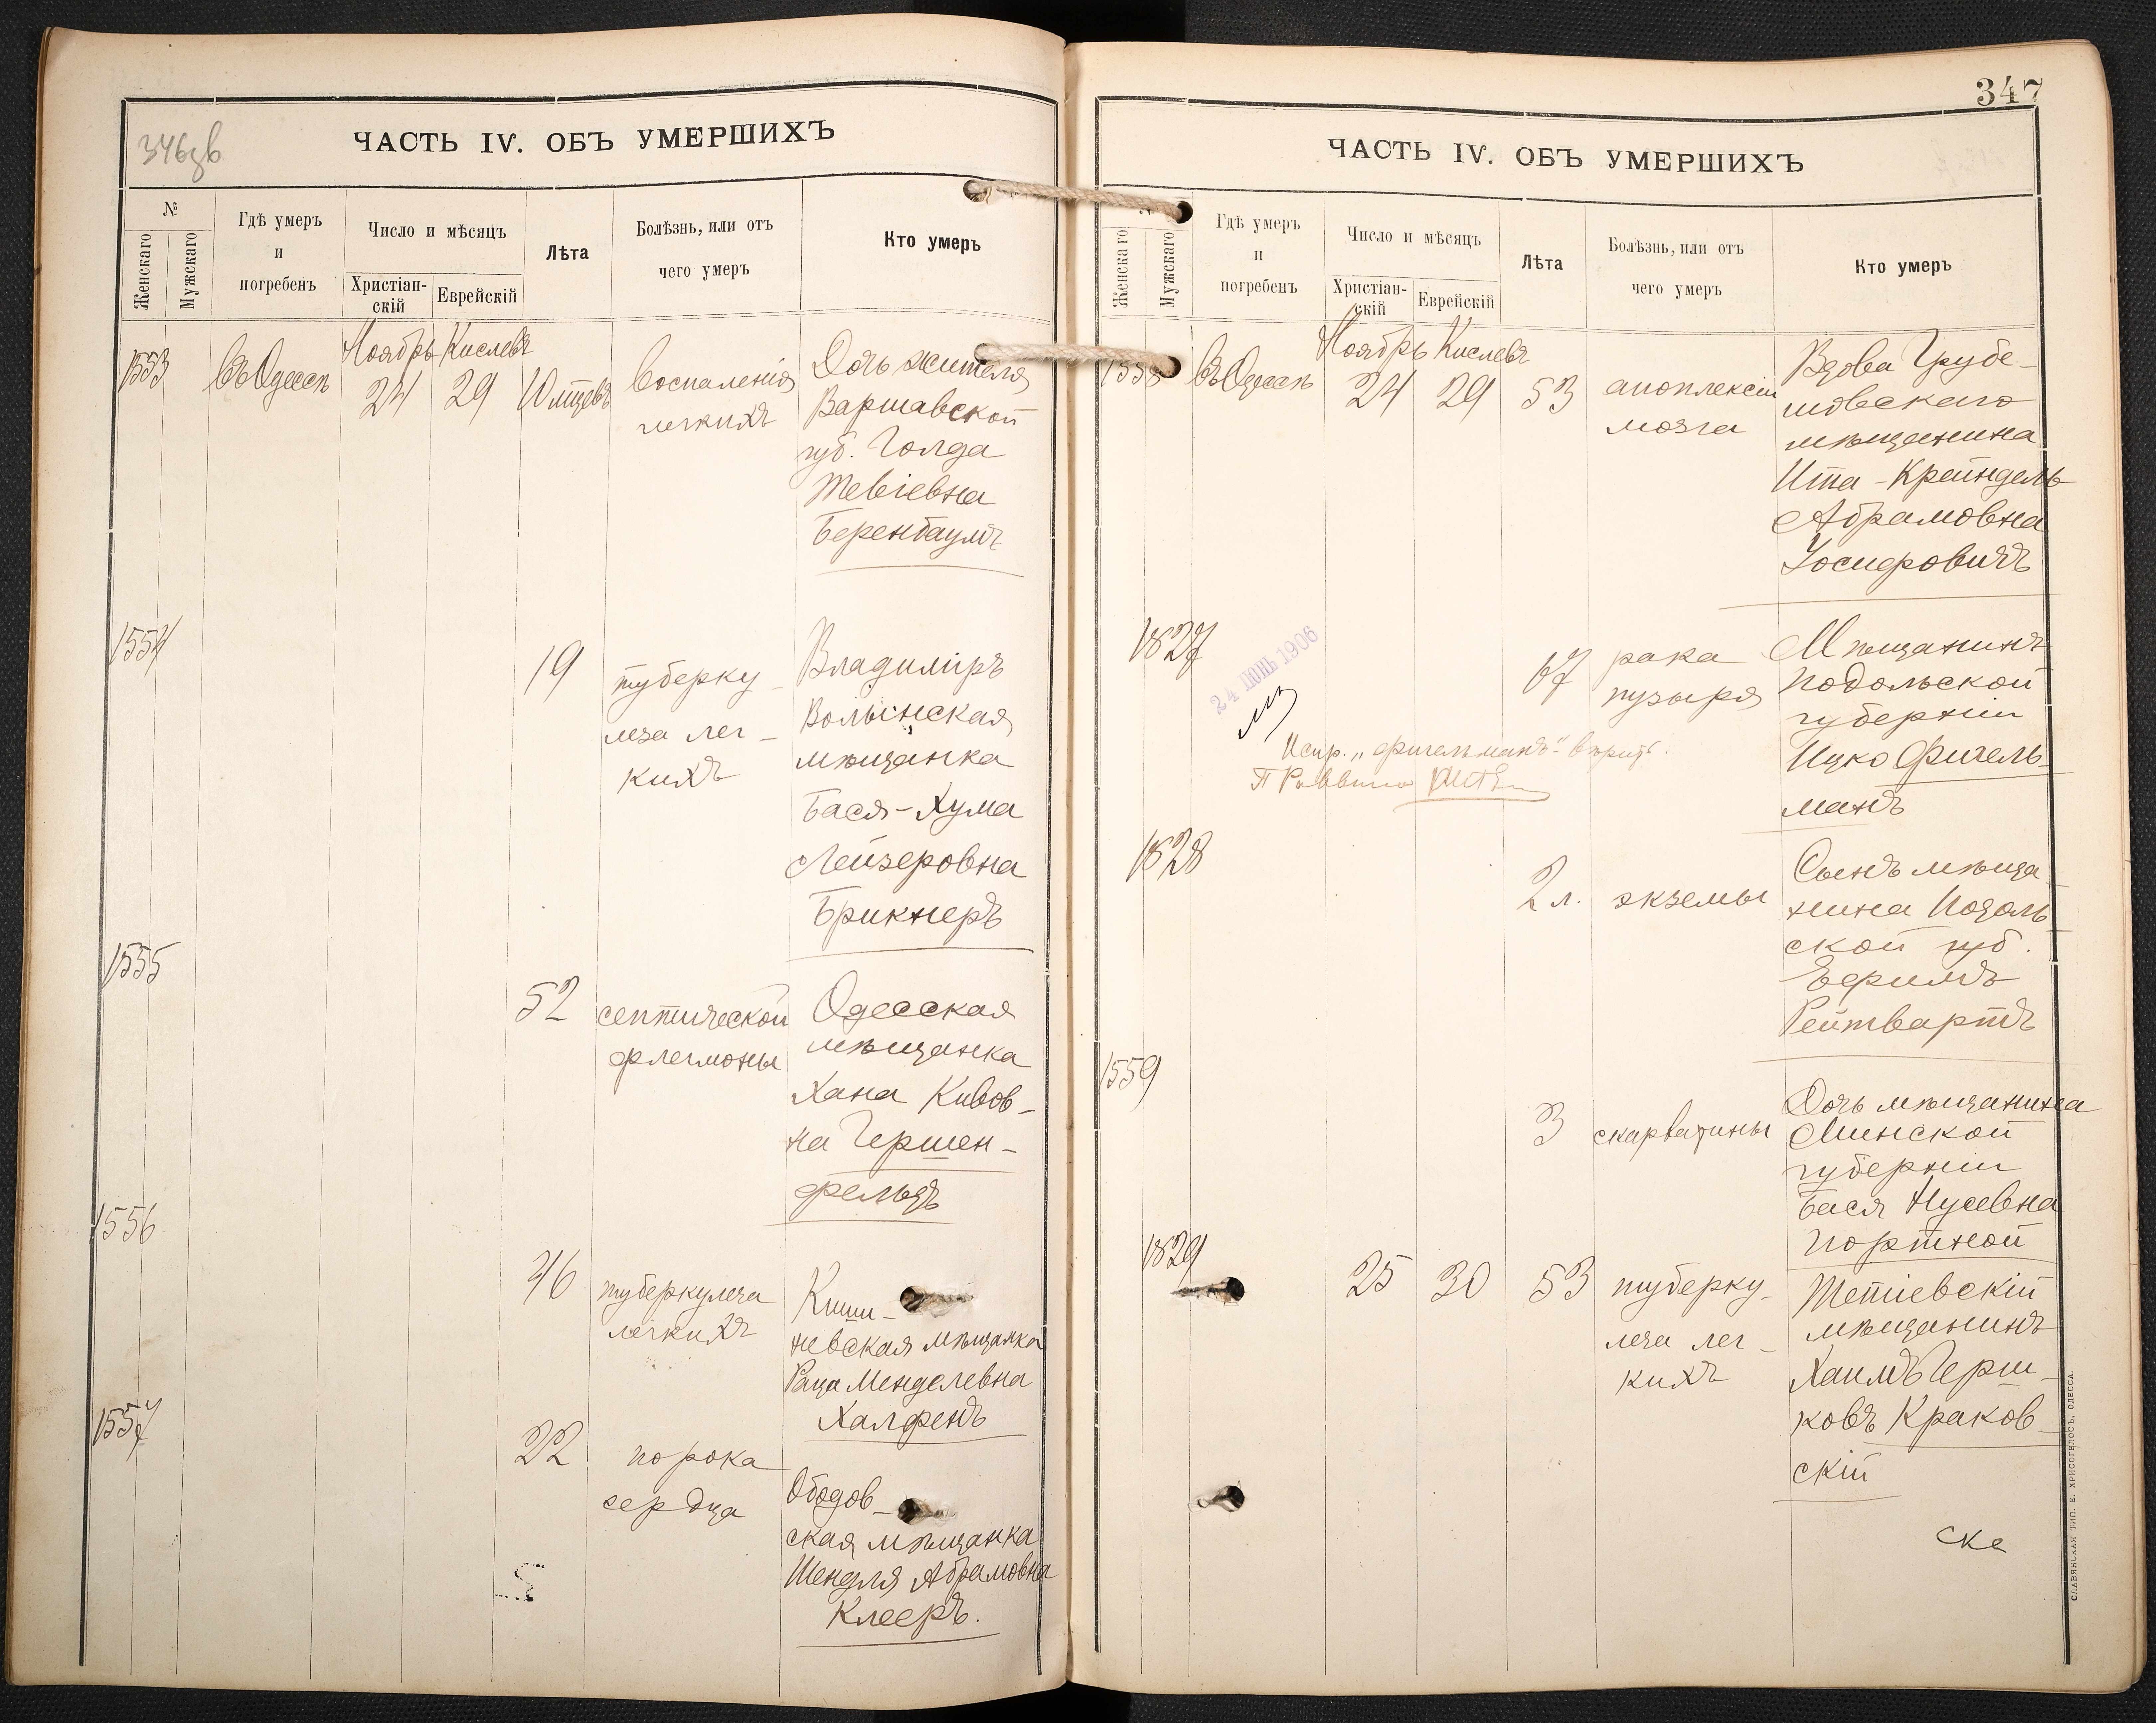 346зв
ЧАСТЬ IV. ОБЪ УМЕРШИХЪ
№
Женскаго
Мужскаго
Гдѣ умеръ
и
погребенъ
Число и мѣсяцъ
Христіан-
скій
Еврейскій
Лѣта
Болѣзнь, или отъ
чего умеръ
Кто умеръ
Ноябрь Кислевъ
1553 Въ Одессѣ 24 29
воспаленія
легкихъ
Дочь жителя
Варшавской
губ. Голда
Тевіевна
Беренбаумъ
1554
19
туберку-
леза лег-
кихъ
Владимiръ
Волынская
мѣщанка
Бася-Хума
Лейзеровна
Брикнеръ
1555
52
септической
флегмоны
Одесская
мѣщанка
Хана Кивов-
на Гершен-
фельдъ
1556
46
туберкулеза
легкихъ
Киши-
невская мѣщанка
Раца Менделевна
Халфенъ
1557
22
порока
сердца
Ободов-
ская мѣщанка
Шендля Абрамовна
Клееръ.
347
ЧАСТЬ IV. ОБЪ УМЕРШИХЪ
№
Женскаго
Мужскаго
Гдѣ умеръ
и
погребенъ
Число и мѣсяцъ
Христіан-
скій
Еврейскій
Лѣта
Болѣзнь, или отъ
чего умеръ
Кто умеръ
Ноябрь Кислевъ
1558 Въ Одессѣ 24 29 53
апоплексіи
мозга
Вдова Грубе-
шовскаго
мѣщанина
Ита-Крейндель
Абрамовна
Іосифовичъ
1827
24 ІЮНЬ 1906
67
рака
пузыря
Мѣщанинъ
Подольской
губерніи
Ицко Фигель-
манъ
Испр. „Фигельманъ" вѣрить.
Раввинъ
1828
2 л.
экземы
Сынъ мѣща-
нина Подоль-
ской губ.
Ефримъ
Рейтвартъ
1559
3
скарлатины
Дочь мѣщанина
Минской
губерніи
Бася Нусевна
Портной
1829
25 30 53
туберку-
леза лег-
кихъ
Тетіевскій
мѣщанинъ
Хаимъ Герш-
ковъ Краков-
скій
ске
СЛАВЯНСКАЯ ТИП. Е. ХРИСОГЕЛОСЪ, ОДЕССА.